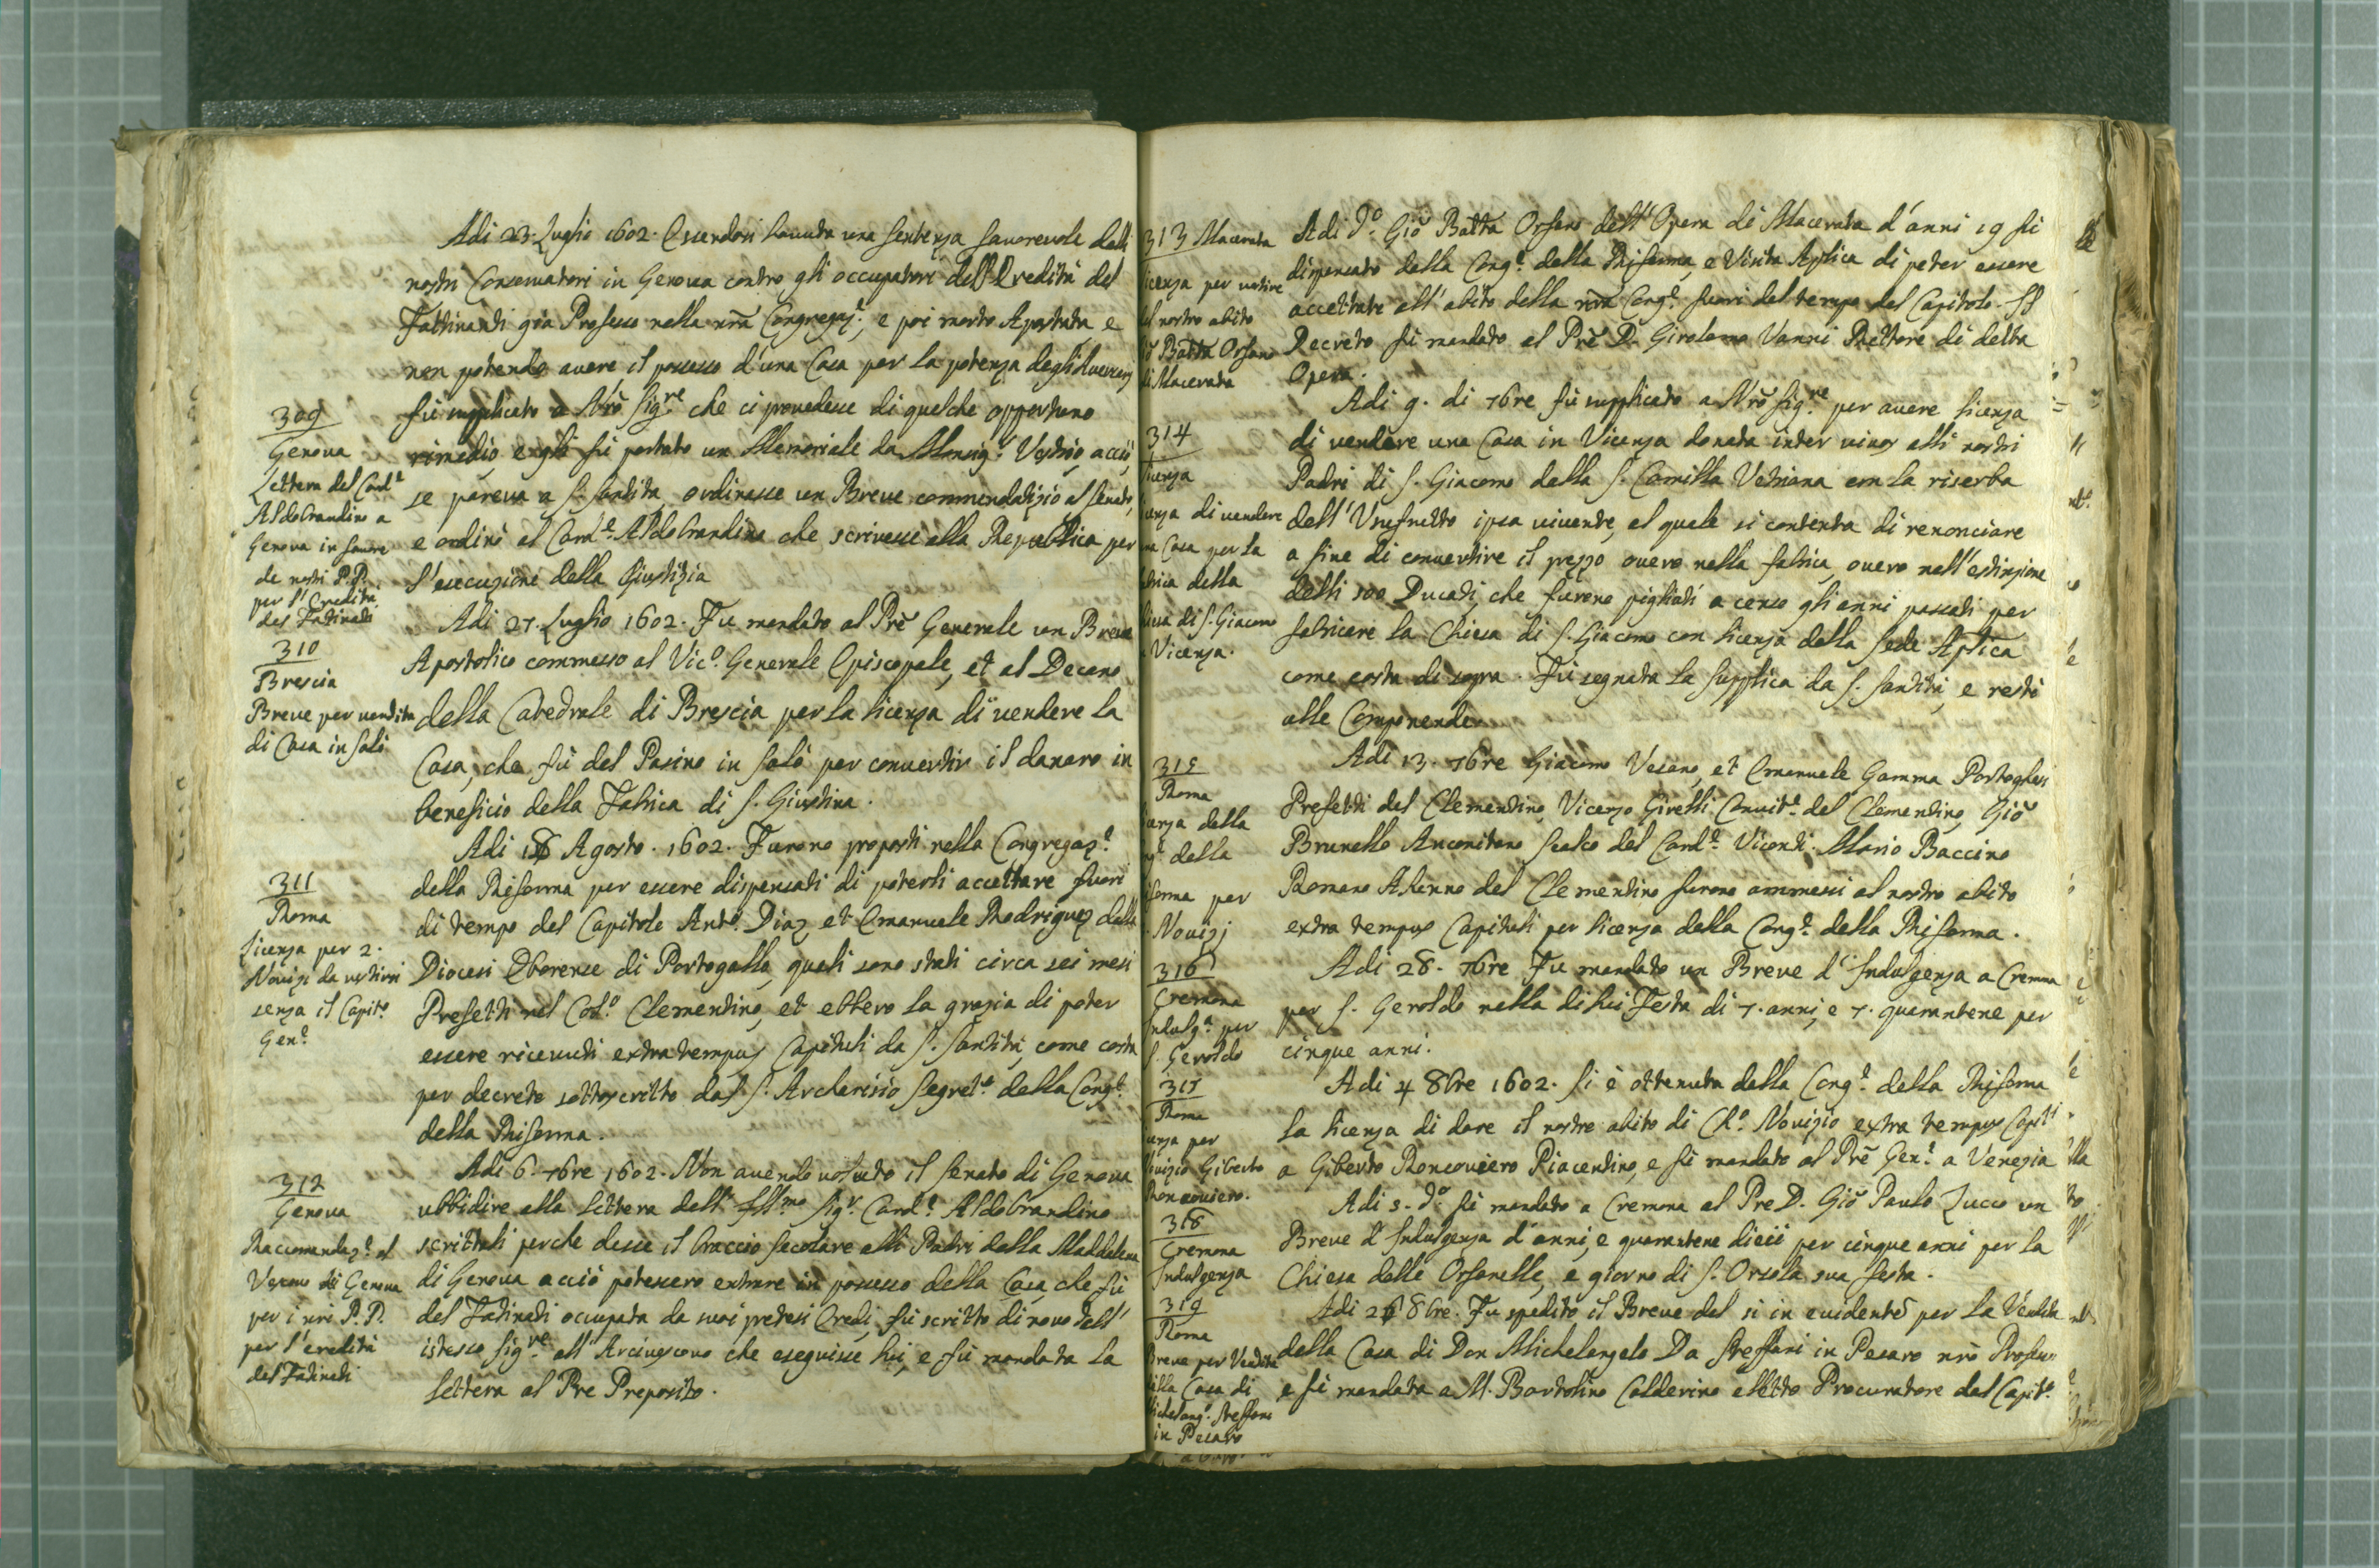 Adi 23. Luglio 1602. Essendosi havuta una sentenza favorevole dalli
nostri Conservatori in Genova contro gli occupatori dell'Eredità del
Fattinanti già Professo nella nrã Congregaz.e, e poi morto Apostata e
non potendo avere il possesso d'una Casa per la potenza degli
fù supplicato a Nrõ Sig.re che ci provedesse di qualche opportuno
rimedio, e gli fù portato un Memoriale da Monsig.r Vestrio acciò,
se pareva a S. Santità, ordinasse un Breve commendatizio al Senato,
e ordinò al Card.e Aldobrandino che scrivesse alla Republica per
l'esecuzione della Giustizia
Adi 27. Luglio 1602. Fu mandato al Prẽ Generale un Breve
Apostolico commesso al Vic.o Generale Episcopale, et al Decano
della Catedrale di Brescia per la licenza di vendere la
Casa, che fù del Pasino in Salò per convertir il danaro in
beneficio della Fabrica di S. Giustina.
Adi 18 Agosto. 1602. Furono proposti nella Congregaz.e
della Riforma per essere dispensati di poterli accettare fuori
di tempo del Capitolo Ant.o Diaz et Emanuele Rodriguez della
Diocesi Eborense di Portogallo, quali sono stati circa sei mesi
Prefetti nel Col.o Clementino, et ebbero la grazia di poter
essere ricevuti extra tempus Capituli da S. Santità come costa
per decreto sottoscritto dal S. Segret.o della Cong.e
della Riforma.
Adi 6. 7bre 1602. Non avendo voluto il Senato di Genova
ubbidire alla lettera dell' Ill.mo Sig.r Card.e Aldobrandino
scrittali perche desse il braccio secolare alli Padri della Maddalena
di Genova acciò potessero entrare in possesso della Casa, che fù
del Fatinati occupata da suoi pretesi Eredi, fù scritto di novo dall'
istesso Sig.re all'Arcivescovo che eseguisse lui, e fù mandata la
lettera al Pre Preposito.
309
Genova
Lettera del Card.e
Aldobrandino a
Genova in favore
de nostri P.P.
per l'Eredità
del Fatinati
310
Brescia
Breve per vendita
di Casa in Salò
311
Roma
Licenza per 2.
Novizi da vestirsi
senza il Capit.o
Gen.e
312
Genova
Raccomandaz.e al
Vescovo di Genova
per i nri P.P.
per l'eredità
del Fatinati
Adi d.o Giõ Batta Orfano dell'Opera di Macerata d'anni 19 fù
dispensato dalla Cong.e della Riforma, e Visita Aplica di poter essere
accettato all'abito della nrã Cong.e fuori del tempo del Capitolo. Il
Decreto fù mandato al Prẽ D. Girolamo Vanni Rettore di detta
Opera.
Adi 9. di 7bre fù supplicato a Nrõ Sig.re per avere licenza
di vendere una Casa in Vicenza donata inter vivos alli nostri
Padri di S. Giacomo dalla S. Camilla Vetriana con la riserba
dell'Usufrutto ipsa vivente, al quale si contenta di renonciare
a fine di convertire il prezzo overo nella fabrica, overo nell'estinzione
delli 500 Ducati, che furono pigliati a censo gli anni passati per
fabricare la Chiesa di S. Giacomo con licenza della Sede Aplica
come costa di sopra. Fù segnata la Supplica da S. Santità, e restò
alle Componende.
Adi 13. 7bre Giacomo Vesano, et Emanuele Gamma Portoghesi
Prefetti del Clementino, Vicenzo Girelli Convit.e del Clementino, Giõ
Brunello Anconitano Scalco del Card.e Viconti. Mario Baccino
Romano Alunno del Clementino furono ammessi al nostro abito
extra tempus Capituli per licenza della Cong.e della Riforma.
Adi 28. 7bre Fu mandato un Breve d'Indulgenza a Cremona
per S. Geroldo nella di lui Festa di 7. anni, e 7. quarantene per
cinque anni.
Adi 4 8bre 1602. Si è ottenuta dalla Cong.e della Riforma
la licenza di dare il nostro abito di Ch.o Novizio extra tempus Capli
a Giberto Roncoviero Piacentino, e fù mandato al Prẽ Gen.e a Venezia
Adi 5. d.o fù mandato a Cremona al Pre D. Giõ Paulo Zucco un
Breve d'Indulgenza d'anni, e quarantene dieci per cinque anni per la
Chiesa delle Orfanelle, e giorno di S. Orsola sua festa.
Adi 26 8bre. Fu spedito il Breve del si in evidentẽ per la Vendita
della Casa di Don Michelangelo Da Steffani in Pesaro nrõ Professo
e fù mandata a M. Bortolino Calderino eletto Procuratore dal Capit.o
313 Macerata
licenza per vestire
il nostro abito
Batta Orfano
di Macerata
314
di vendere
Casa per la
della
di S. Giacomo
Vicenza.
315
Roma
della
della
per
Novizj
316
Cremona
Indulg.a per
S. Geroldo
317
Roma
per
Giberto
Roncoviero.
318
Cremona
Indulgenza
319
Roma
Breve per Vendita
della Casa di
Michelang.o Steffani
in Pesaro